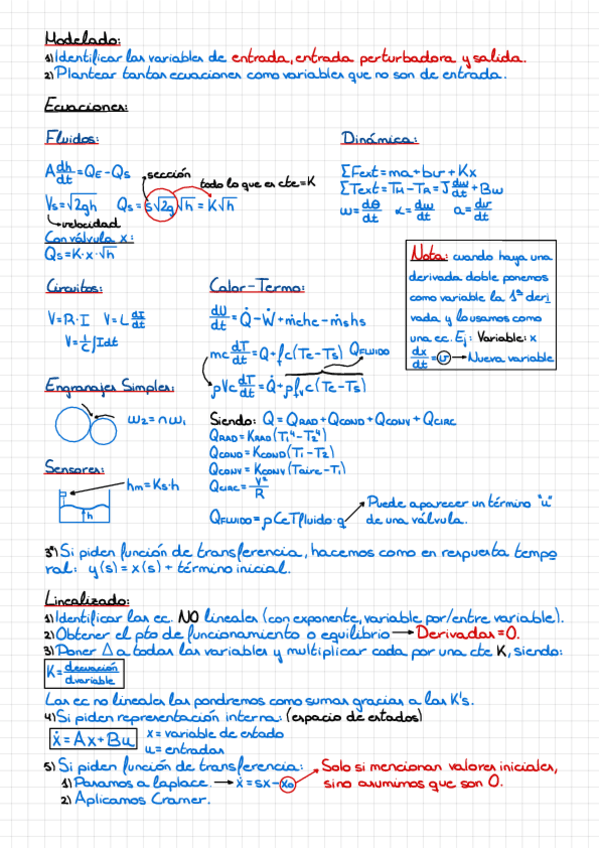 Modelado:
1) Identificar las variables de entrada, entrada perturbadora y salida.
2) Plantear tantas ecuaciones como variables que no son de entrada.
Ecuaciones:
Fluidos:
A dh/dt = QE - QS
sección
todo lo que es cte = K
Vs = √2gh   Qs = s√2g √h = K√h
velocidad
Con válvula x:
Qs = K·x·√h
Dinámica:
ΣFext = ma + bv + Kx
ΣText = TM - TR = J dw/dt + Bw
w = dθ/dt   α = dw/dt   a = dv/dt
Nota: cuando haya una
derivada doble ponemos
como variable la 1ª deri
vada y lo usamos como
una ec. Ej: Variable: x
dx/dt = v → Nueva variable
Circuitos:
V = R·I   V = L dI/dt
V = 1/C ∫Idt
Calor-Termo:
dU/dt = Q̇ - Ẇ + ṁehe - ṁshs
mc dT/dt = Q + fc(Te - Ts)   QFLUIDO
ρVc dT/dt = Q̇ + ρfvc(Te - Ts)
Engranajes Simples:
w2 = nw1
Siendo: Q = QRAD + QCOND + QCONV + QCIRC
QRAD = KRAD (T1⁴ - T2⁴)
QCOND = KCOND (T1 - T2)
QCONV = KCONV (Taire - T1)
QCIRC = V²/R
QFLUIDO = ρCeTfluido·q
Puede aparecer un término "u"
de una válvula.
Sensores:
hm = Ks·h
h
3º) Si piden función de transferencia, hacemos como en respuesta tempo
ral: y(s) = x(s) + término inicial.
Linealizado:
1) Identificar las ec. NO lineales (con exponente, variable por/entre variable).
2) Obtener el pto de funcionamiento o equilibrio → Derivadas = 0.
3) Poner Δ a todas las variables y multiplicar cada por una cte K, siendo:
K = decuación/dvariable
Las ec no lineales las pondremos como sumas gracias a las K's.
4) Si piden representación interna: (espacio de estados)
ẋ = Ax + Bu
x = variable de estado
u = entradas
5) Si piden función de transferencia:
1) Pasamos a laplace. → ẋ = sx - x0
2) Aplicamos Cramer.
Solo si mencionan valores iniciales,
sino asumimos que son 0.